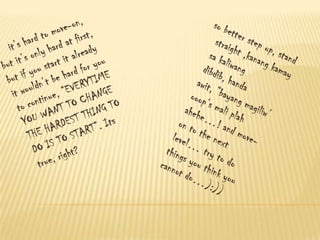 it's hard to move-on,
but it's only hard at first,
but if you start it already
it wouldn't be hard for you
to continue. "EVERYTIME
YOU WANT TO CHANGE
THE HARDEST THING TO
DO IS TO START". Its
true, right?
so better step up, stand
straight ,kanang kamay
sa kaliwang
dibdib, handa
awit, "bayang magiliw'
ooop's mali plah
ahehe...! and move-
on to the next
level... try to do
things you think you
cannot do...);))